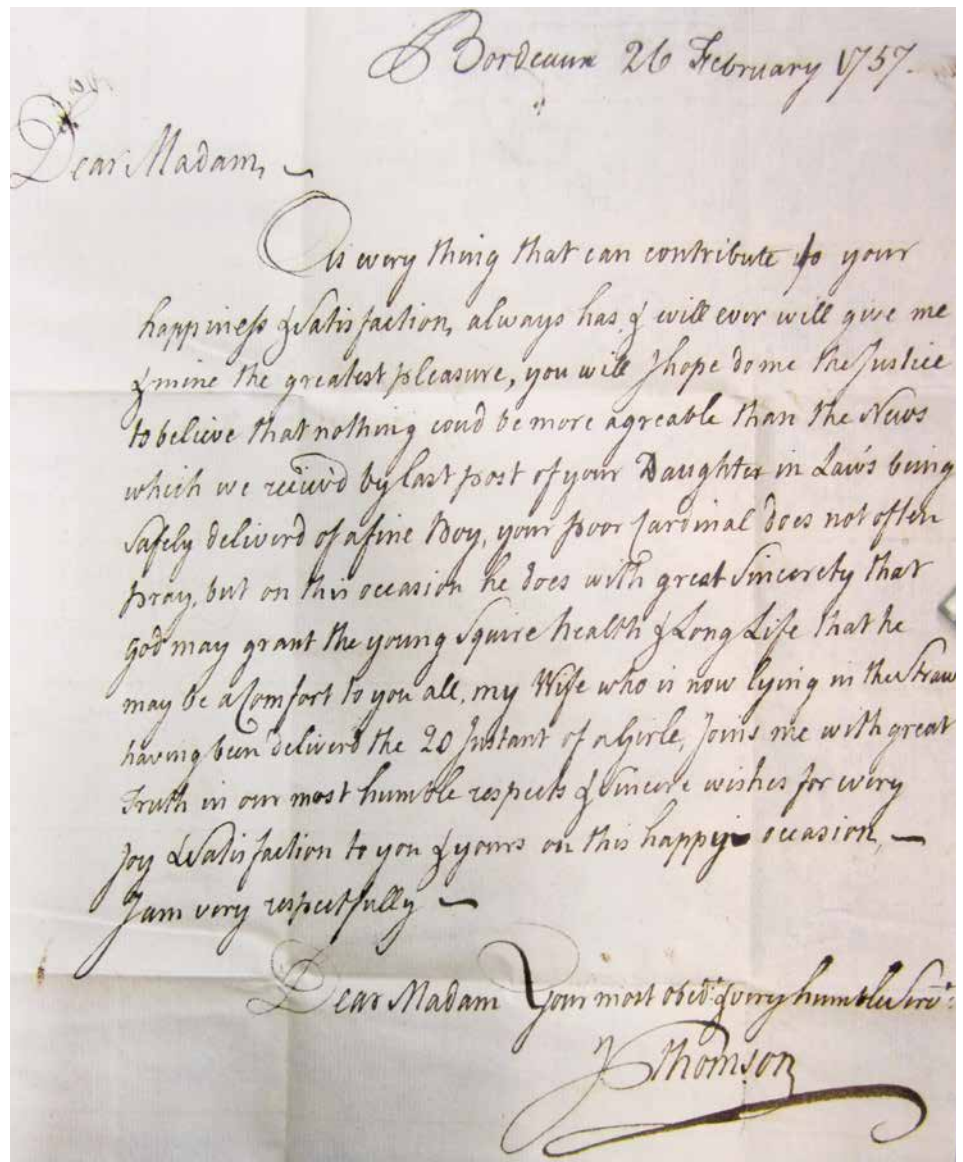 Bordeaux 26 February 1757.
Dear Madam,
As every thing that can contribute to your
happiness & Satisfaction, always has & will ever will give me
& mine the greatest pleasure, you will I hope do me the Justice
to believe that nothing coud be more agreable than the News
which we receiv'd by last post of your Daughter in Law's being
safely deliverd of a fine Boy, your poor Cardinal does not often
pray, but on this occasion he does with great Sincerety that
God may grant the young Squire health & Long Life that he
may be a Comfort to you all, my Wife who is now lying in the Straw
having been deliverd the 20 Instant of a Girle, Joins me with great
Truth in our most humble respects & Sincere wishes for every
Joy & Satisfaction to you & yours on this happy occasion, —
I am very respectfully —
Dear Madam Your most obedt. & very humble Servt.
Thomson